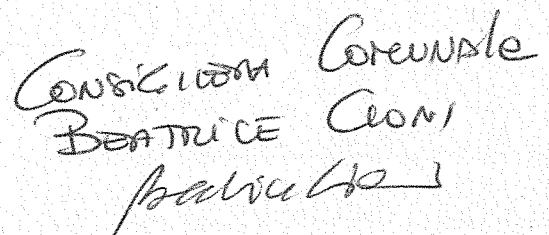 Consigliera Comunale
Beatrice Cioni